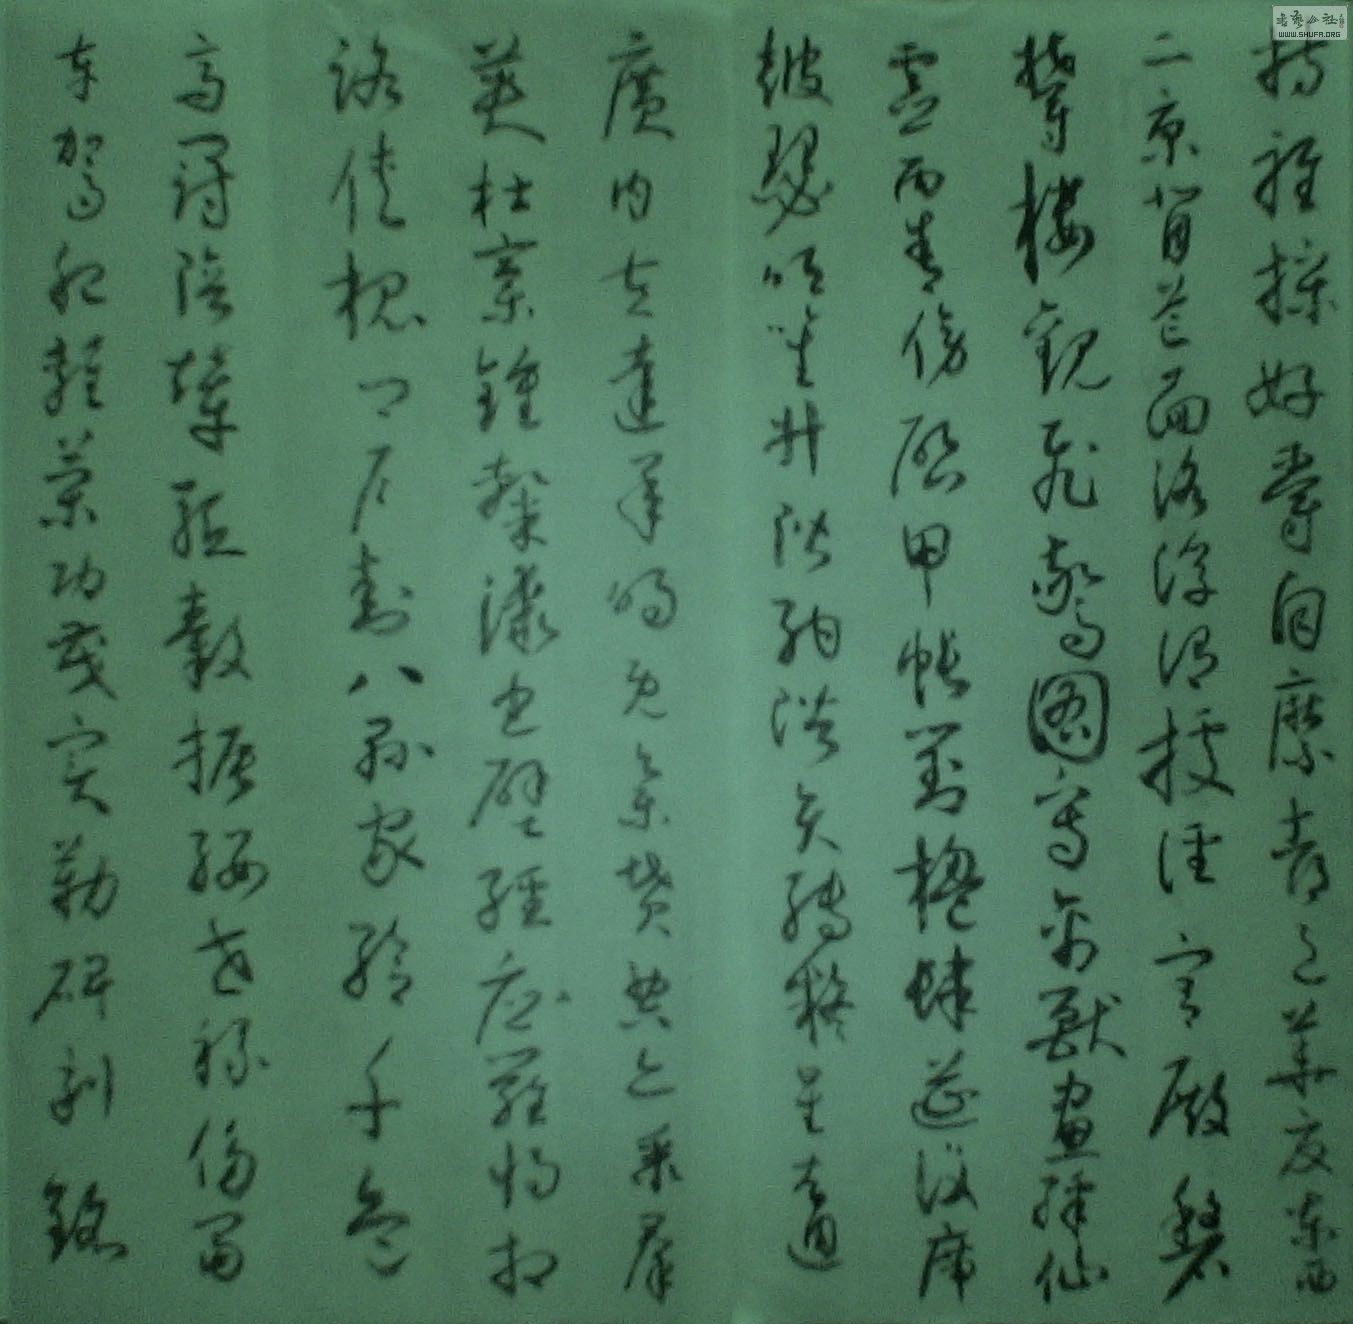 持雅操好爵自縻都邑華夏東西
二京背芒面洛浮渭據涇宮殿盤
鬱樓觀飛驚圖寫禽獸畫彩仙
靈丙舍傍啟甲帳對楹肆筵設席
鼓瑟吹笙升階納陛弁轉疑星右通
廣內左達承明既集墳典亦聚群
英杜稾鍾隸漆書壁經府羅將相
路俠槐卿戶封八縣家給千兵
高冠陪輦驅轂振纓世祿侈富
車駕肥輕策功茂實勒碑刻銘
WWW.SHUFA.ORG